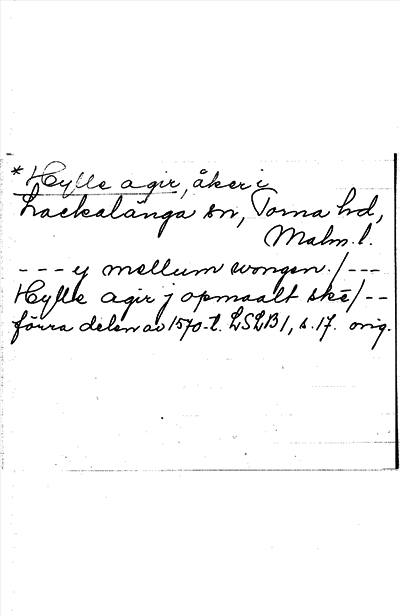 * Hylle agir, åker i
Lackalänga sn, Torna hd,
Malm. l.
--- y mellum wongen./---
Hylle agir j opmaalt skē/--
förra delen av 1570-t. LSLB1, s.17. orig.